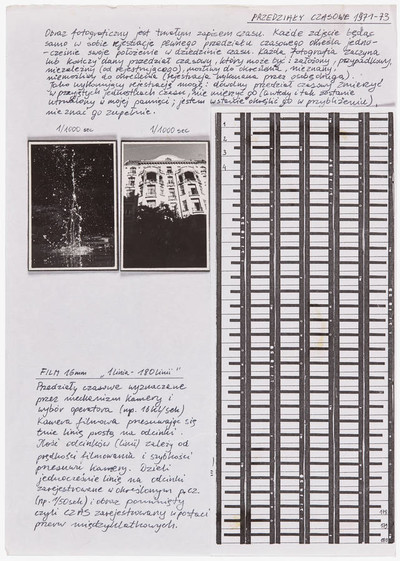 PRZEDZIAŁY CZASOWE 1971-73
Obraz fotograficzny jest trwałym zapisem czasu. Każde zdjęcie będąc
samo w sobie rejestracją pewnego przedziału czasowego określa jedno-
cześnie swoje położenie w dziedzinie czasu. Każda fotografia zaczyna
lub kończy dany przedział czasowy, który może być: założony, przypadkowy,
niezależny (od rejestrującego), możliwy do określenia, nieznany,
niemożliwy do określenia (rejestracja wykonana przez
Jako wykonujący rejestrację mogę: dowolny przedział czasowy zmierzyć
w przyjętych jednostkach czasu, nie mierzyć go (wtedy i tak zostanie
utrwalony w mojej pamięci; jestem w stanie określić go w przybliżeniu),
nie znać go zupełnie.
1/1000 sec
1/1000 sec
1
2
3
4
FILM 16mm „1 linia - 180 linii"
Przedziały czasowe wyznaczane
przez mechanizm kamery i
wybór operatora (np. 16kl/sek)
Kamera filmowa przesuwając się
tnie linię prostą na odcinki.
Ilość odcinków (linii) zależy od
prędkości filmowania i szybkości
przesuwu kamery. Dzieli
jednocześnie linię na odcinki
zarejestrowane w określonym p.cz.
(np. 1/50 sek) i obraz pominięty
czyli CZAS zarejestrowany w postaci
przerw międzyklatkowych.
179
180